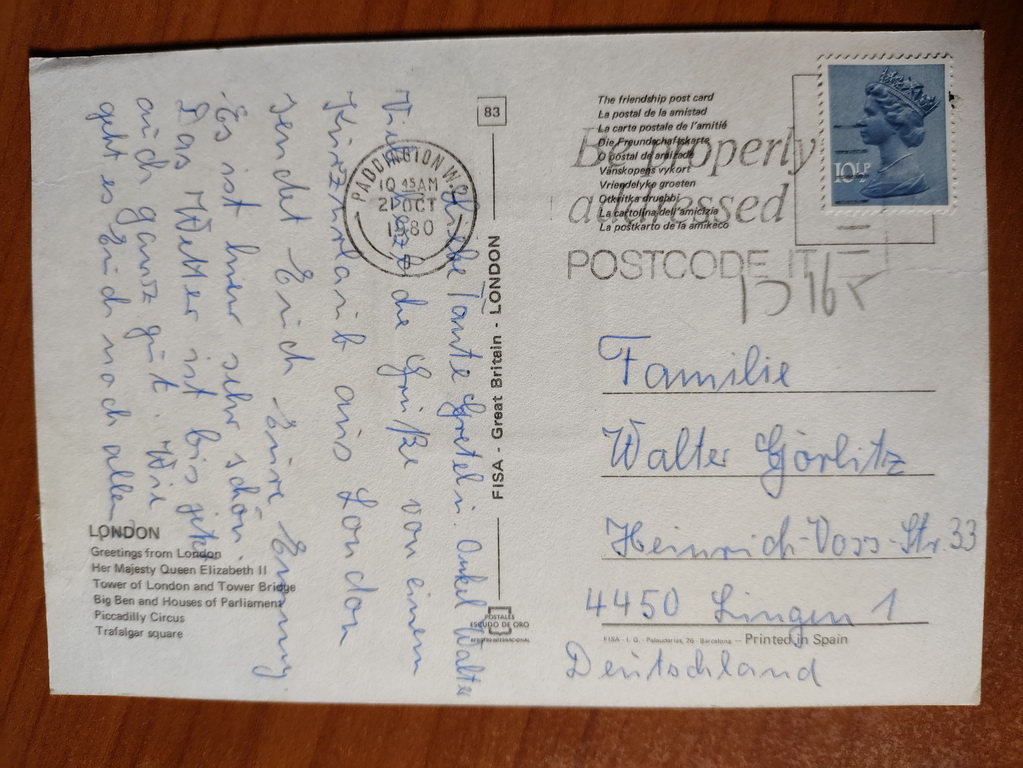 Liebe Tante Gretel u. Onkel Walter
Viele liebe Grüße von einem
Kurzurlaub aus London
sendet Euch Eure
Es ist hier sehr schön.
Das Wetter ist bis jetzt
auch ganz gut. Wie
geht es Euch nach allem
LONDON
Greetings from London
Her Majesty Queen Elizabeth II
Tower of London and Tower Bridge
Big Ben and Houses of Parliament
Piccadilly Circus
Trafalgar square
83
FISA - Great Britain - LONDON
POSTALES
ESCUDO DE ORO
PADDINGTON W.2
10 45 AM
21 OCT
1980
The friendship post card
La postal de la amistad
La carte postale de l'amitié
Die Freundschaftskarte
O postal de amizade
Vänskapens vykort
Vriendelyke groeten
Otkritka drushbi
La cartolina dell'amicizia
La postkarto de la amikeco
Be properly
addressed
POSTCODE IT
10½P
Familie
Walter Görlitz
Heinrich-Voss-Str. 33
4450 Lingen 1
Deutschland
FISA - I. G. - Palaudarias, 26 - Barcelona - Printed in Spain